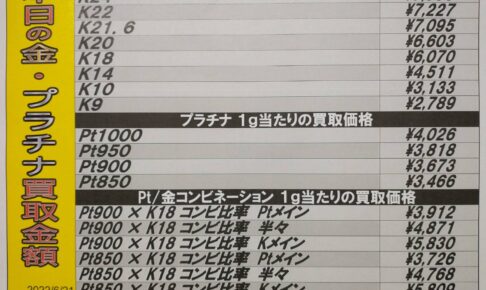 本日の金・プラチナ買取金額
K22 ¥7,227
K21.6 ¥7,095
K20 ¥6,603
K18 ¥6,070
K14 ¥4,511
K10 ¥3,133
K9 ¥2,789
プラチナ 1g当たりの買取価格
Pt1000 ¥4,026
Pt950 ¥3,818
Pt900 ¥3,673
Pt850 ¥3,466
Pt/金コンビネーション 1g当たりの買取価格
Pt900 × K18 コンビ比率 Ptメイン ¥3,912
Pt900 × K18 コンビ比率 半々 ¥4,871
Pt900 × K18 コンビ比率 Kメイン ¥5,830
Pt850 × K18 コンビ比率 Ptメイン ¥3,726
Pt850 × K18 コンビ比率 半々 ¥4,768
Pt850 × K18 コンビ比率 Kメイン ¥5,809
2022/6/24